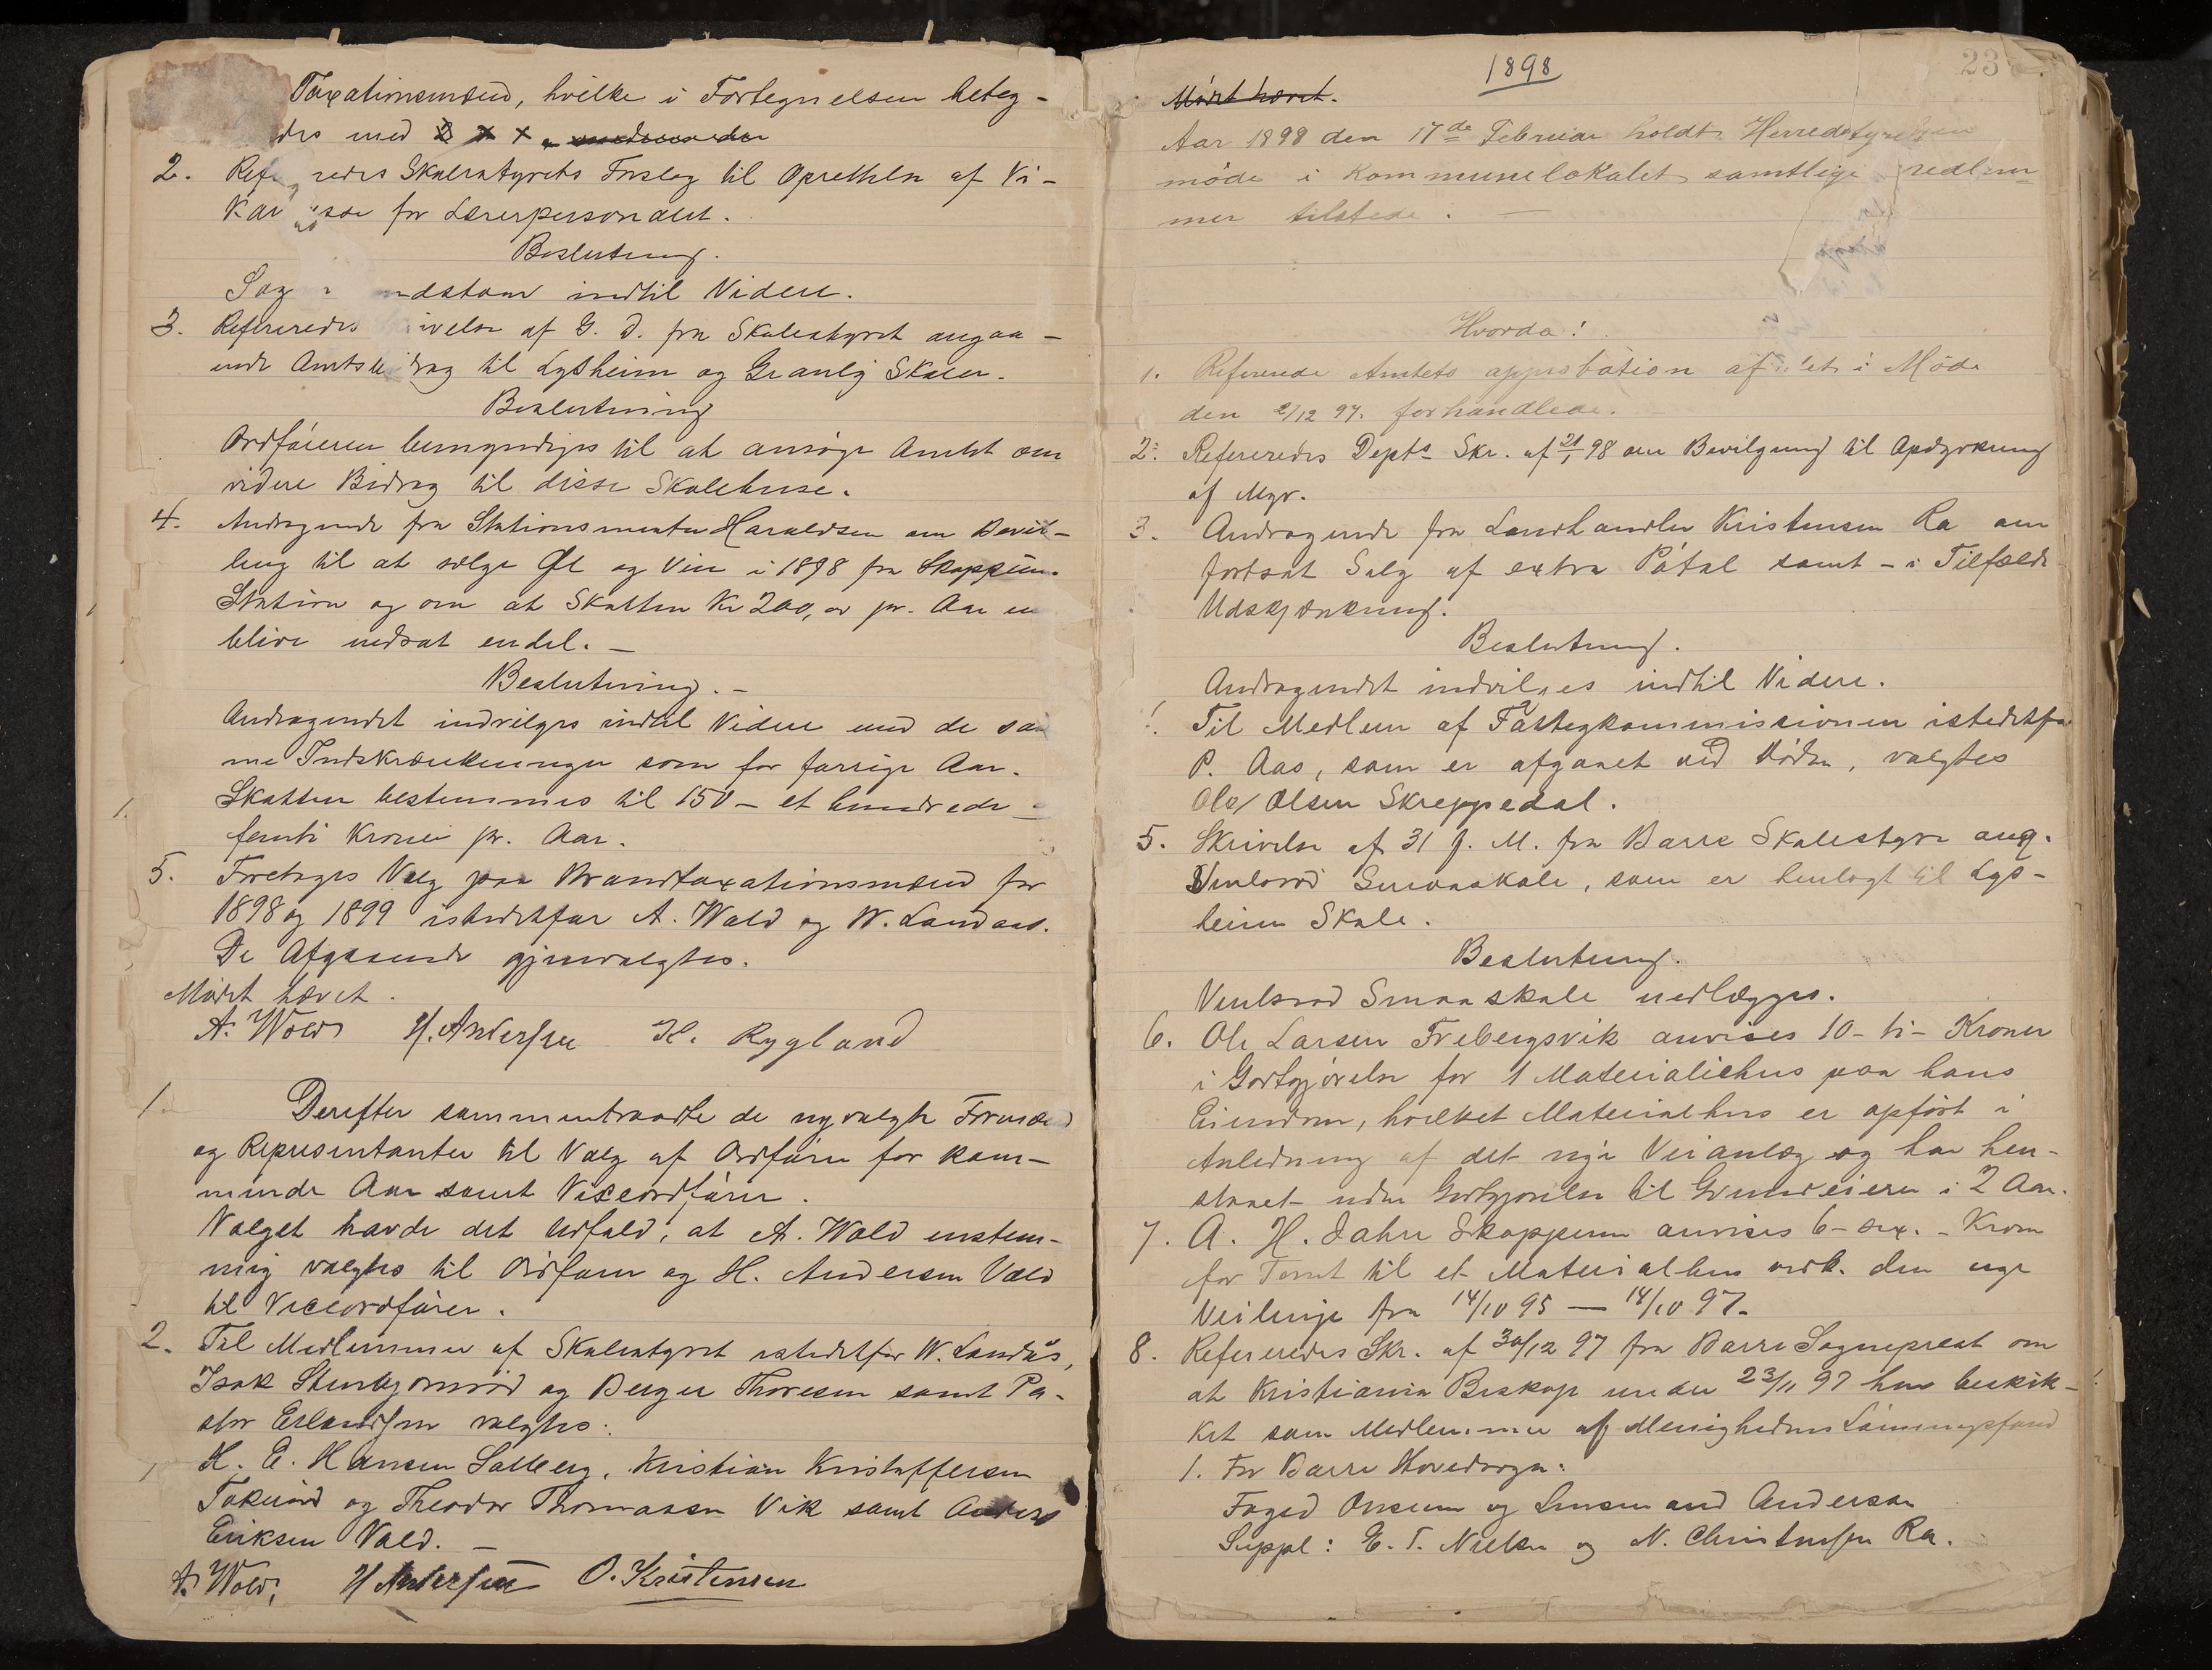 Taxationsmænd, hvilke i Fortegnelsen beteg-
des med x
2. Refereredes Skolestyrets Forslag til Oprettelse af Vi-
for Lærerpersonalet.
Beslutning.
indtil Videre.
3. Refereredes af G. D. fra Skolestyret angaa-
ende Amtsbidrag til Lysheim og Granly Skoler.
Beslutning
Ordføreren bemyndiges til at ansøge Amtet om
videre Bidrag til disse Skolehuse.
4. Andragende fra Stationsmester Haraldsen om Bevil-
ling til at sælge Øl og Vin i 1898 fra Skoppum
Station og om at Skatten Kr 200, pr. Aar
blive nedsat endel. —
Beslutning. –
Andragendet indvilges indtil Videre med de sam
me Indskrænkninger som for forrige Aar.
Skatten bestemmes til 150 – et hundrede
femti Kroner pr. Aar.
5. Foretoges Valg paa Brandtaxationsmænd for
1898 og 1899 istedetfor A. Wold og W. Landaas.
De Afgaaende gjenvalgtes.
Mødet hævet.
A. Wold H. Andersen H. Rygland
1. Derefter sammentraadte de nyvalgte Formænd
og Repræsentanter til Valg af Ordfører for kom-
mende Aar samt Viceordfører.
Valget havde det Udfald, at A. Wold enstem-
mig valgtes til Ordfører og H. Andersen Vold
til Viceordfører.
2. Til Medlemmer af Skolestyret istedetfor W. Landås,
Isak og Berger Thoresen samt Pa-
stor Erlandsen valgtes:
H. E. Hansen Solberg, Kristian Kristoffersen
og Theodor Thomassen Vik samt Anders
Eriksen Vold. —
A. Wold, H Andersen O. Kristensen
1898
23
Mødet hævet.
Aar 1898 den 17de Februar holdt Herredstyrelsen
møde i Kommunelokalet samtlige medlem
mer tilstede. —
Hvorda:
1. Refererede Amtets approbation af det i Møde
den 2/12 97. forhandlede.
2. Refereredes Depts Skr. af 21/1 98 om Bevilgning til Opdyrkning
af Myr.
3. Andragende fra Landhandler Kristensen Ra om
fortsat Salg af extra Pottøl samt – i Tilfælde
Udskjænkning.
Beslutning.
Andragendet indvilges indtil Videre.
Til Medlem af Fattigkommissionen istedetfor
P. Aas, som er afgaaet ved Døden, valgtes
Ole Olsen Skreppedal.
5. Skrivelse af 31 f. M. fra Borre Skolestyre ang.
Smaaskole, som er henlagt til Lys-
heim Skole.
Beslutning.
Smaaskole nedlægges.
6. Ole Larsen Frebergsvik anvises 10 – ti – Kroner
i Godtgjørelse for 1 Materialiehus paa hans
Eiendom, hvilket Materialhus er opført i
Anledning af det nye Veianlæg og har hen-
staaet uden Godtgjørelse til Grundeieren i 2 Aar.
7. A. H. Jahre Skoppum anvises 6 – sex. – Kroner
for Tomt til et Materialhus ved den nye
Veilinje fra 14/10 95 — 14/10 97.
8. Refereredes Skr. af 30/12 97 fra Borre Sogneprest om
at Kristiania Biskop under 23/11 97 har beskik-
ket som Medlemmer af Menighedens Lønningsfond
1. For Borre Hovedsogn:
Foged Onsum og Lensmand Andersen
Suppl: E. T. Nielsen og N. Christensen Ra.